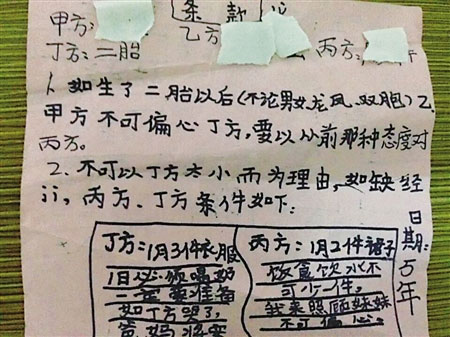 条款
甲方：
乙方
丙方：
丁方：二胎
1、如生了二胎以后（不论男女龙凤、双胞）乙
甲方不可偏心丁方，要以从前那种态度对
丙方。
2、不可以丁方太小而为理由，如缺经
济，丙方、丁方条件如下：
丁方：1月3件衣服
1日必须喝奶
一定要准备
如丁方哭了，
爸妈将要
丙方：1月2件裙子
饭食饮水不
可少一件。
我来照顾妹妹
不可偏心。
日期：5年